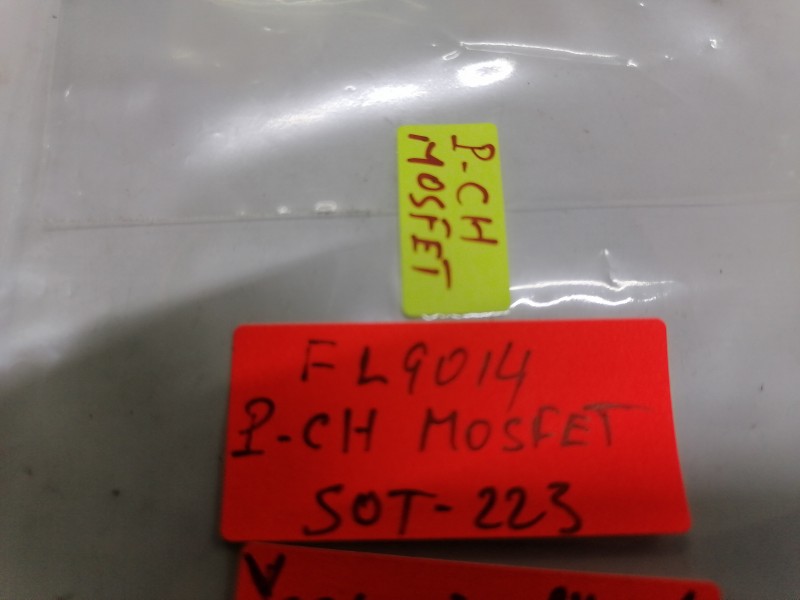 P-CH
MOSFET
FL9014
P-CH MOSFET
SOT-223